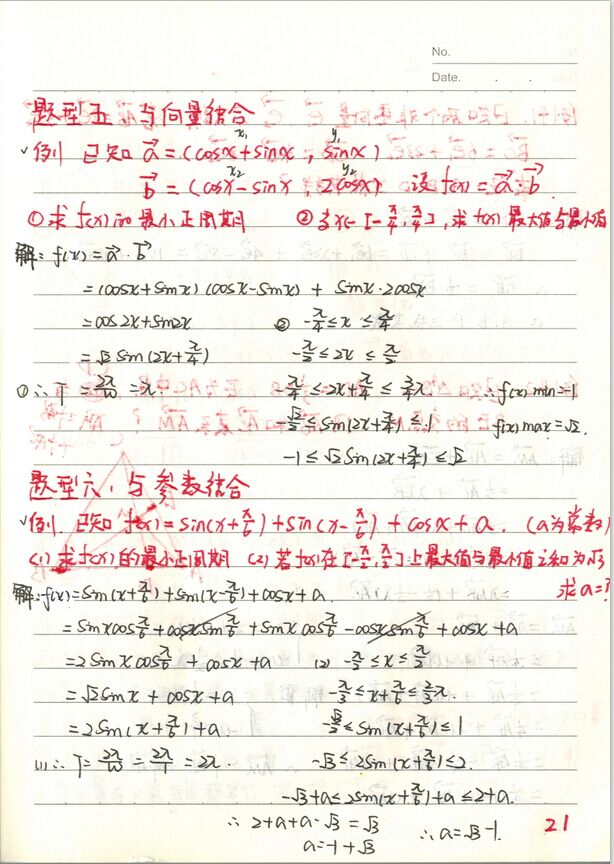 No.
Date. . .
题型五 与向量结合
√例 已知 a⃗=(cosx+sinx, sinx)
x₁ y₁
b⃗=(cosx-sinx, 2cosx) 设f(x)=a⃗·b⃗
x₂ y₂
①求f(x)的最小正周期 ②当x∈[-π/4, π/4],求f(x)最大值与最小值
解:f(x)=a⃗·b⃗
=(cosx+sinx)(cosx-sinx)+sinx·2cosx
=cos2x+sin2x ② -π/4≤x≤π/4
=√2sin(2x+π/4) -π/2≤2x≤π/2
①∴T=2π/ω=π. -π/4≤2x+π/4≤3/4π ∴f(x)min=-1
-√2/2≤sin(2x+π/4)≤1 f(x)max=√2.
-1≤√2sin(2x+π/4)≤√2
题型六.与参数结合
√例.已知f(x)=sin(x+π/6)+sin(x-π/6)+cosx+a.(a为常数)
(1)求f(x)的最小正周期 (2)若f(x)在[-π/2, π/2]上最大值与最小值之和为√3
求a=?
解:f(x)=sin(x+π/6)+sin(x-π/6)+cosx+a.
=sinxcosπ/6+cosxsinπ/6+sinxcosπ/6-cosxsinπ/6+cosx+a
=2sinxcosπ/6+cosx+a (2) -π/2≤x≤π/2
=√2sinx+cosx+a -π/3≤x+π/6≤2/3π.
=2sin(x+π/6)+a. -√3/2≤sin(x+π/6)≤1
(1)∴T=2π/ω=2π/1=2π -√3≤2sin(x+π/6)≤2.
-√3+a≤2sin(x+π/6)+a≤2+a.
∴2+a+a-√3=√3 ∴a=√3-1.
a=-1+√3
21